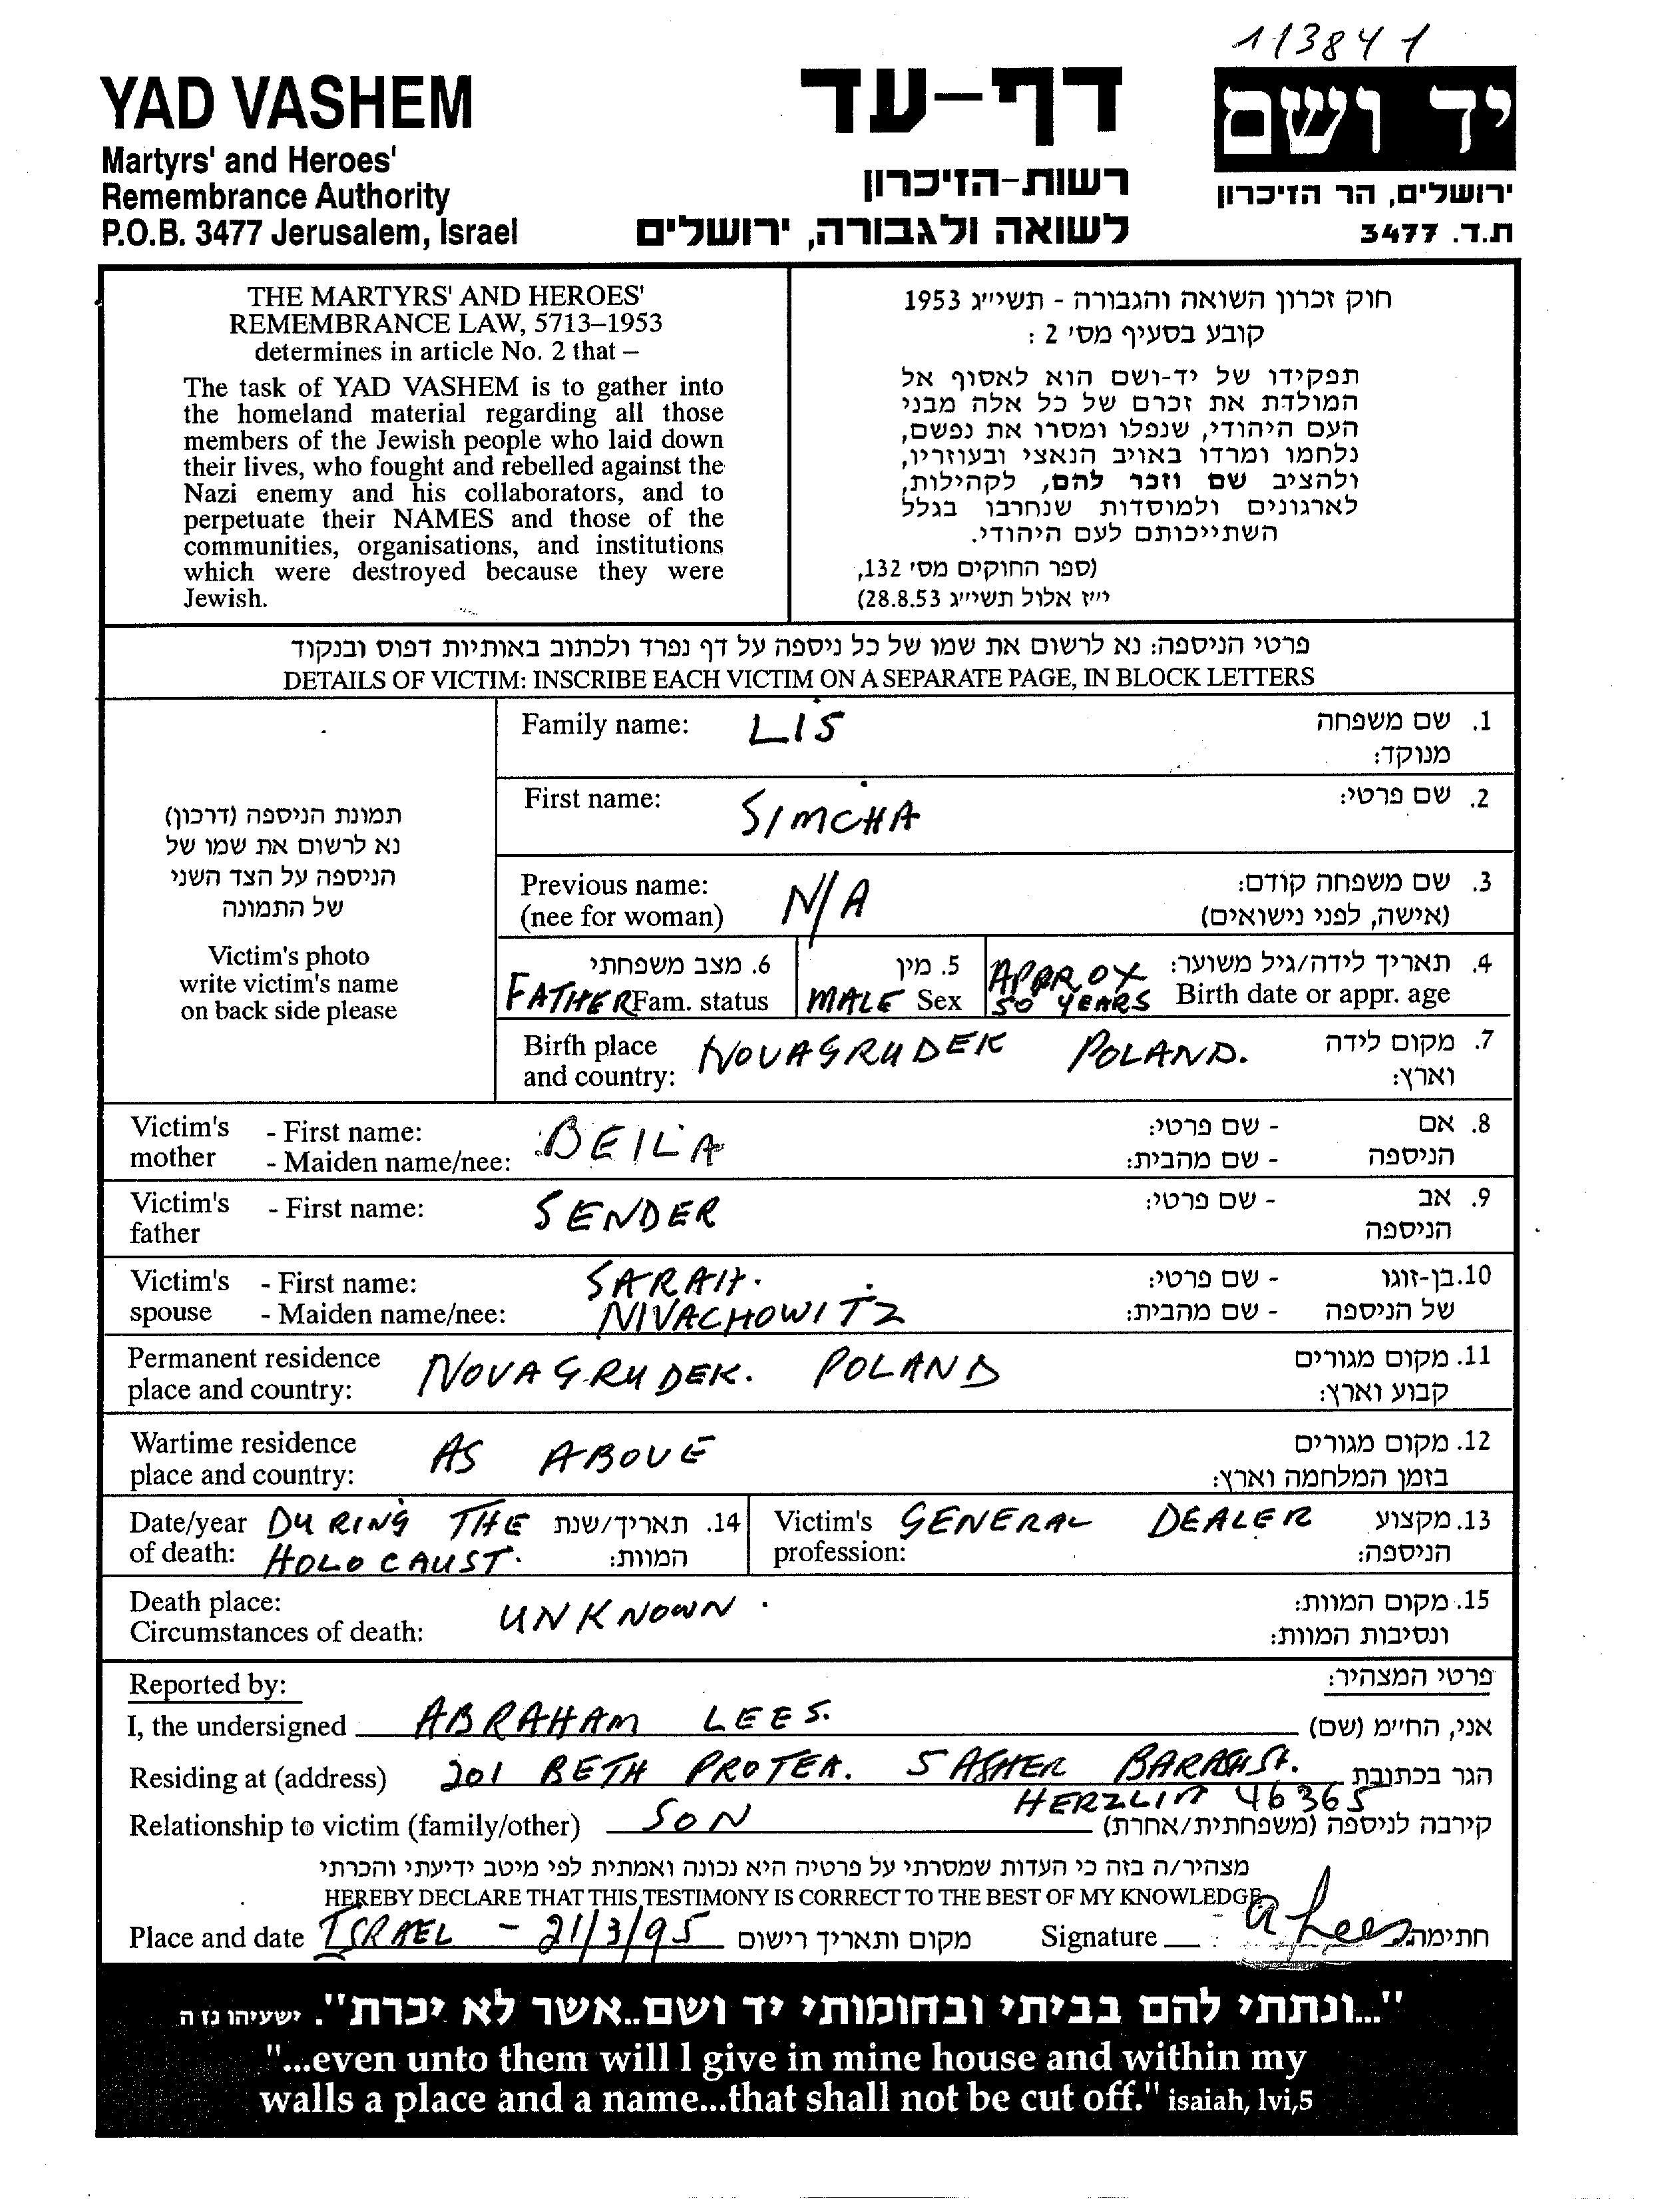 113841
YAD VASHEM
Martyrs' and Heroes'
Remembrance Authority
P.O.B. 3477 Jerusalem, Israel
דף-עד
רשות-הזיכרון
לשואה ולגבורה, ירושלים
יד ושם
ירושלים, הר הזיכרון
ת.ד. 3477
THE MARTYRS' AND HEROES'
REMEMBRANCE LAW, 5713–1953
determines in article No. 2 that –
The task of YAD VASHEM is to gather into
the homeland material regarding all those
members of the Jewish people who laid down
their lives, who fought and rebelled against the
Nazi enemy and his collaborators, and to
perpetuate their NAMES and those of the
communities, organisations, and institutions
which were destroyed because they were
Jewish.
חוק זכרון השואה והגבורה - תשי״ג 1953
קובע בסעיף מס׳ 2 :
תפקידו של יד-ושם הוא לאסוף אל
המולדת את זכרם של כל אלה מבני
העם היהודי, שנפלו ומסרו את נפשם,
נלחמו ומרדו באויב הנאצי ובעוזריו,
ולהציב שם וזכר להם, לקהילות,
לארגונים ולמוסדות שנחרבו בגלל
השתייכותם לעם היהודי.
(ספר החוקים מס׳ 132,
י״ז אלול תשי״ג 28.8.53)
פרטי הניספה: נא לרשום את שמו של כל ניספה על דף נפרד ולכתוב באותיות דפוס ובנקוד
DETAILS OF VICTIM: INSCRIBE EACH VICTIM ON A SEPARATE PAGE, IN BLOCK LETTERS
תמונת הניספה (דרכון)
נא לרשום את שמו של
הניספה על הצד השני
של התמונה
Victim's photo
write victim's name
on back side please
Family name: LIS 1. שם משפחה
מנוקד:
First name: SIMCHA 2. שם פרטי:
Previous name: N/A 3. שם משפחה קודם:
(nee for woman) (אישה, לפני נישואים)
6. מצב משפחתי 5. מין APPROX 4. תאריך לידה/גיל משוער:
FATHER Fam. status MALE Sex 50 YEARS Birth date or appr. age
Birth place NOVAGRUDEK POLAND. 7. מקום לידה
and country: וארץ:
Victim's - First name: BEILA - שם פרטי: 8. אם
mother - Maiden name/nee: - שם מהבית: הניספה
Victim's - First name: SENDER - שם פרטי: 9. אב
father הניספה
Victim's - First name: SARAH. - שם פרטי: 10. בן-זוגו
spouse - Maiden name/nee: NIVACHOWITZ - שם מהבית: של הניספה
Permanent residence NOVAGRUDEK. POLAND 11. מקום מגורים
place and country: קבוע וארץ:
Wartime residence AS ABOVE 12. מקום מגורים
place and country: בזמן המלחמה וארץ:
Date/year DURING THE 14. תאריך/שנת Victim's GENERAL DEALER 13. מקצוע
of death: HOLOCAUST. המוות: profession: הניספה:
Death place: UNKNOWN. 15. מקום המוות:
Circumstances of death: ונסיבות המוות:
Reported by: פרטי המצהיר:
I, the undersigned ABRAHAM LEES. אני, החי״מ (שם)
Residing at (address) 201 BETH PROTEA. 5 ASHER BARASH St. הגר בכתובת
HERZLIA 46365
Relationship to victim (family/other) SON קירבה לניספה (משפחתית/אחרת)
מצהיר/ה בזה כי העדות שמסרתי על פרטיה היא נכונה ואמתית לפי מיטב ידיעתי והכרתי
HEREBY DECLARE THAT THIS TESTIMONY IS CORRECT TO THE BEST OF MY KNOWLEDGE
Place and date ISRAEL - 21/3/95 מקום ותאריך רישום Signature a Lees חתימה
"...ונתתי להם בביתי ובחומותי יד ושם..אשר לא יכרת". ישעיהו נז ה
"...even unto them will I give in mine house and within my
walls a place and a name...that shall not be cut off." isaiah, lvi,5